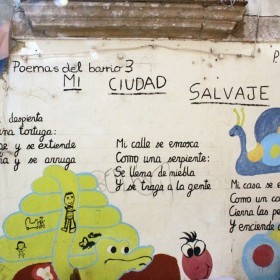 Poemas del barrio 3
P
MI CIUDAD SALVAJE
despierta
una tortuga:
se y se extiende
ña y se arruga
Mi calle se enrosca
Como una serpiente:
Se llena de niebla
Y se traga a la gente
Mi casa se e
Como un ca
Cierra las pe
Y enciende